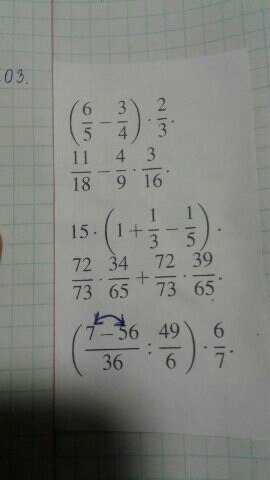 03.
(6/5 − 3/4) · 2/3.
11/18 − 4/9 · 3/16.
15 · (1 + 1/3 − 1/5).
72/73 · 34/65 + 72/73 · 39/65.
((7 − 56)/36 : 49/6) · 6/7.